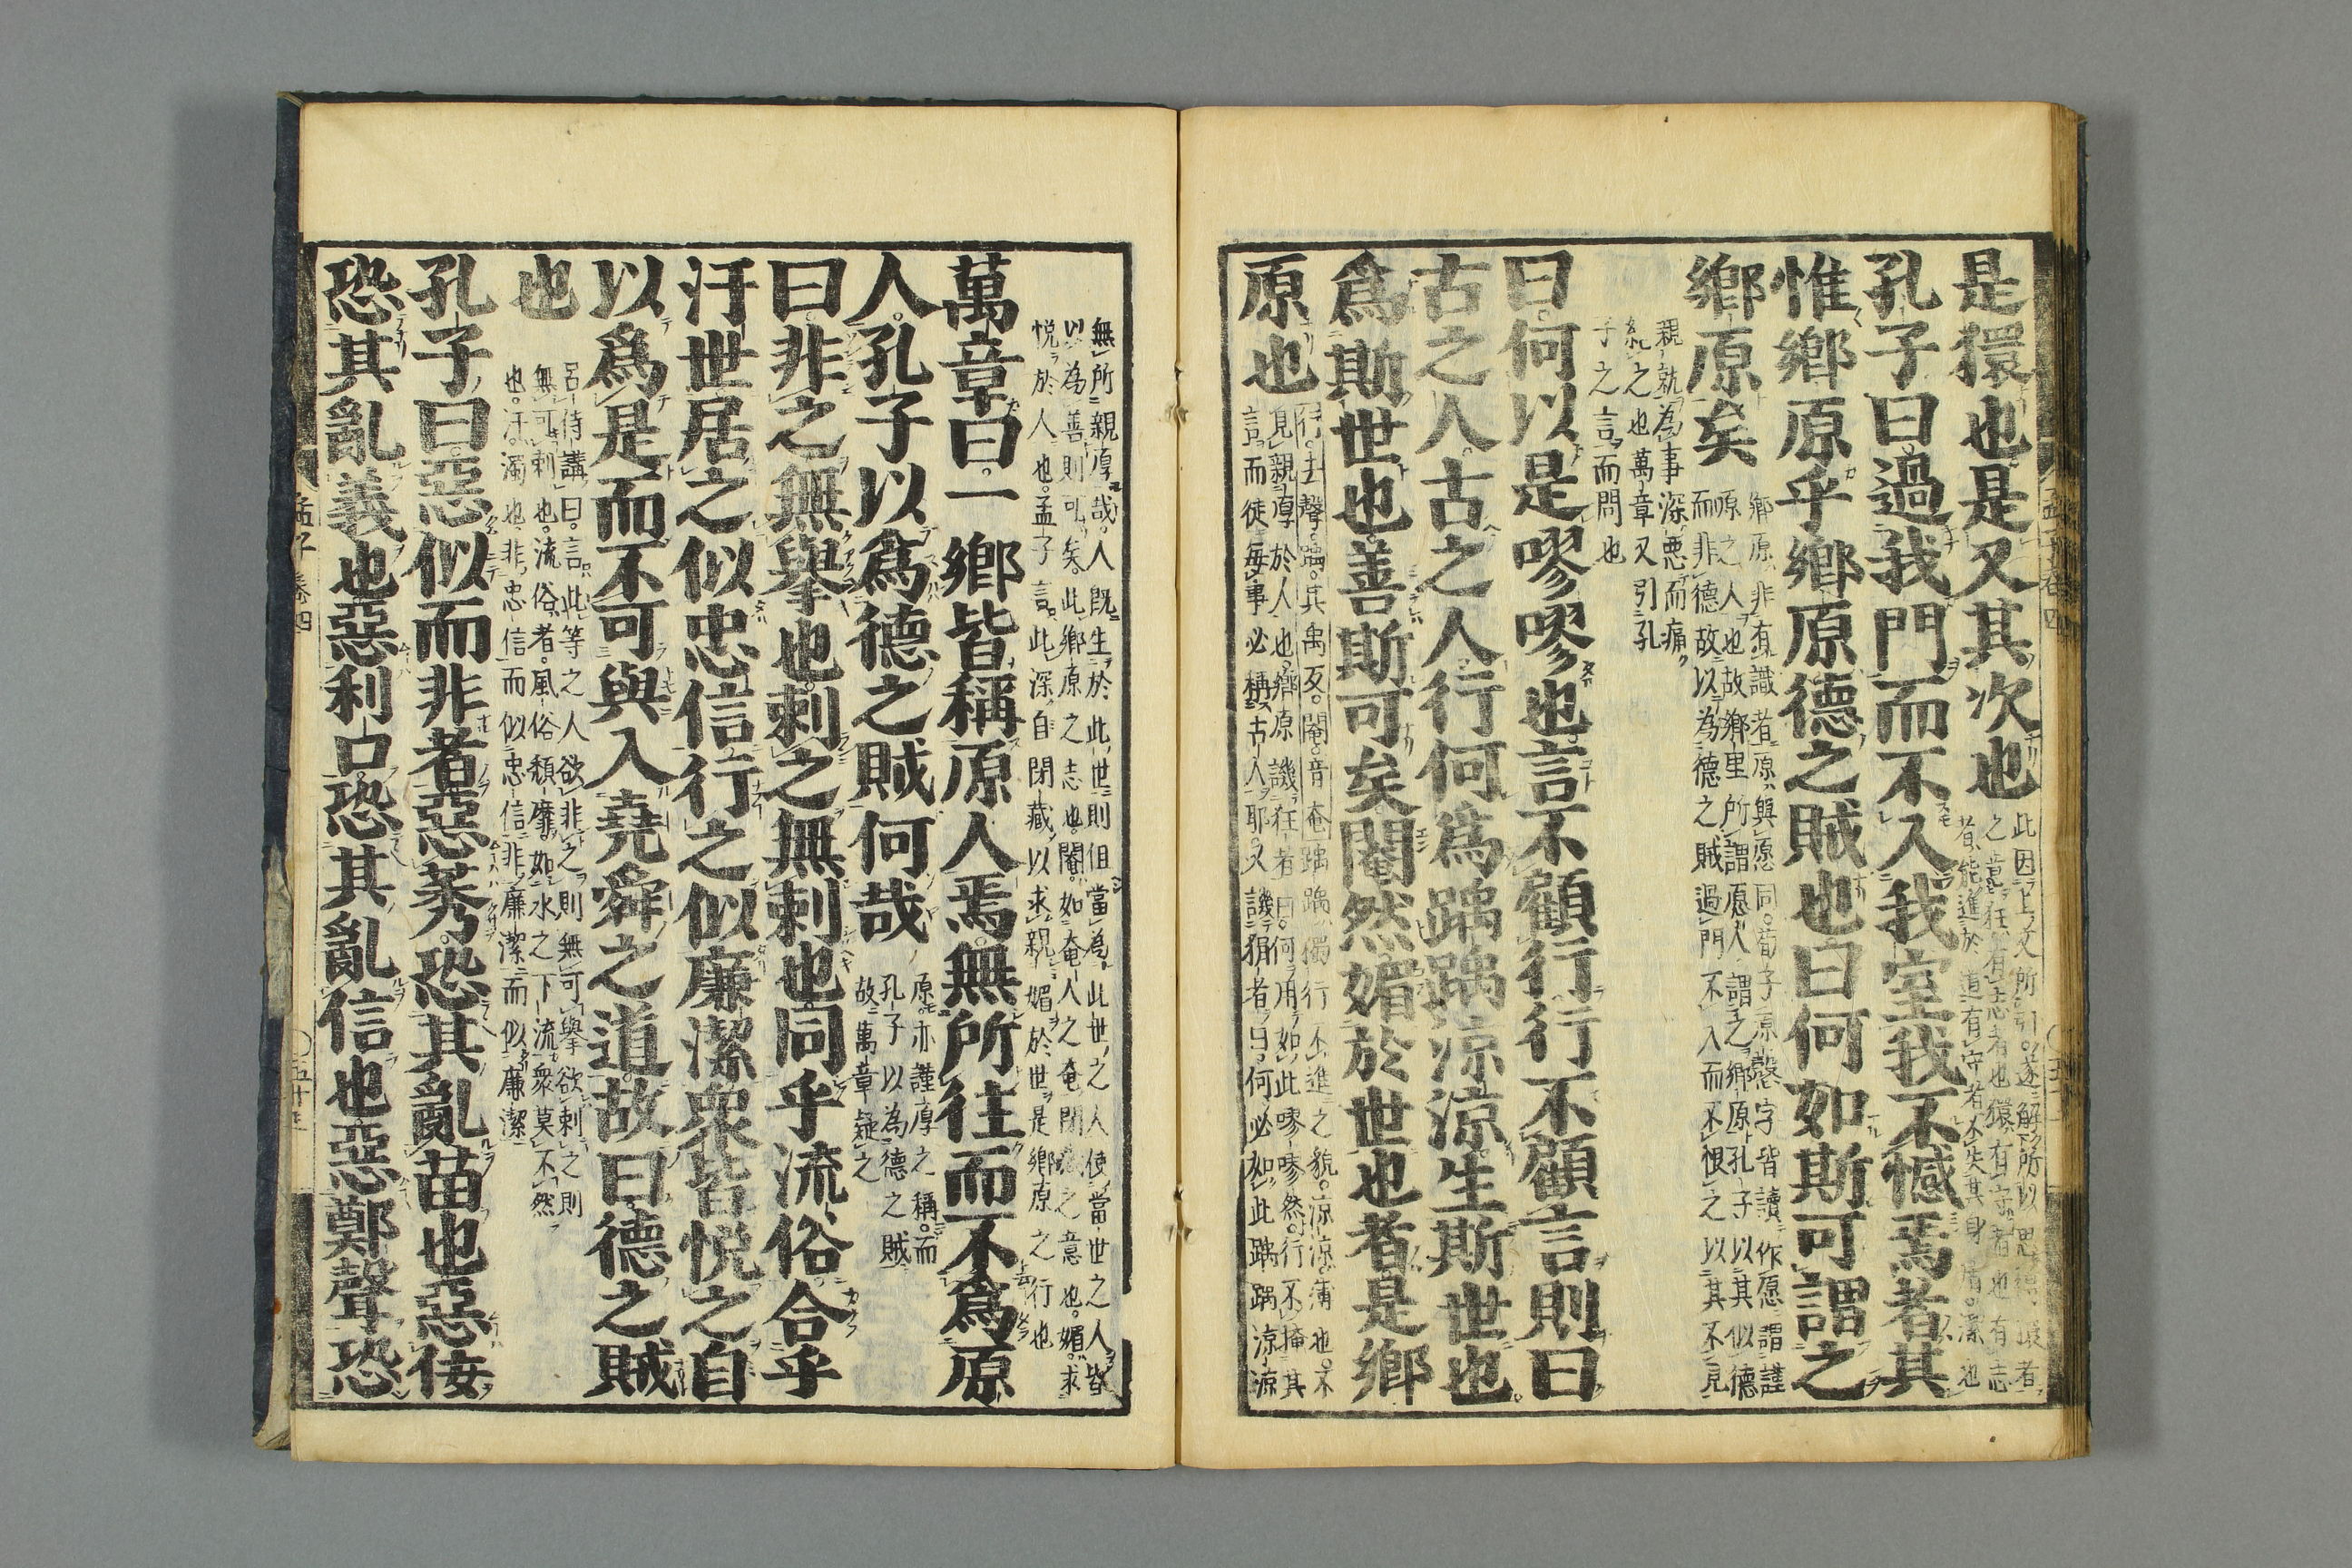 是獧也是又其次也
此因上文所引遂解所以思得獧者
之意狂有志者也獧有守者也有志
者能進於道有守者不失其身屑潔也
孔子曰過我門而不入我室我不憾焉者其
惟鄉原乎鄉原德之賊也曰何如斯可謂之
鄉原矣
鄉原非有識者原與愿同荀子原愨字皆讀作愿謂謹
原之人也故鄉里所謂愿人謂之鄉原孔子以其似德
而非德故以為德之賊過門不入而不恨之以其不見
親就為幸深惡而痛
絕之也萬章又引孔
子之言而問也
曰何以是嘐嘐也言不顧行行不顧言則曰
古之人古之人行何爲踽踽涼涼生斯世也
爲斯世也善斯可矣閹然媚於世也者是鄉
原也
行去聲踽其禹反閹音奄踽踽獨行不進之貌涼涼薄也不
見親厚於人也鄉原譏狂者曰何用如此嘐嘐然行不掩其
言而徒每事必稱古人耶又譏狷者曰何必如此踽踽涼涼
無所親厚哉人既生於此世則但當為此世之人使當世之人皆
以為善則可矣此鄉原之志也閹如奄人之奄閉藏之意也媚求
悅於人也孟子言此深自閉藏以求親媚於世是鄉原之行也
萬章曰一鄉皆稱原人焉無所往而不爲原
人孔子以爲德之賊何哉
原亦謹厚之稱而
孔子以為德之賊
故萬章疑之
曰非之無舉也刺之無刺也同乎流俗合乎
汙世居之似忠信行之似廉潔衆皆悅之自
以爲是而不可與入堯舜之道故曰德之賊
也
呂侍講曰言此等之人欲非之則無可舉欲刺之則
無可刺也流俗者風俗頹靡如水之下流衆莫不然
也汙濁也非忠信而似忠信非廉潔而似廉潔
孔子曰惡似而非者惡莠恐其亂苗也惡佞
恐其亂義也惡利口恐其亂信也惡鄭聲恐
孟子卷四